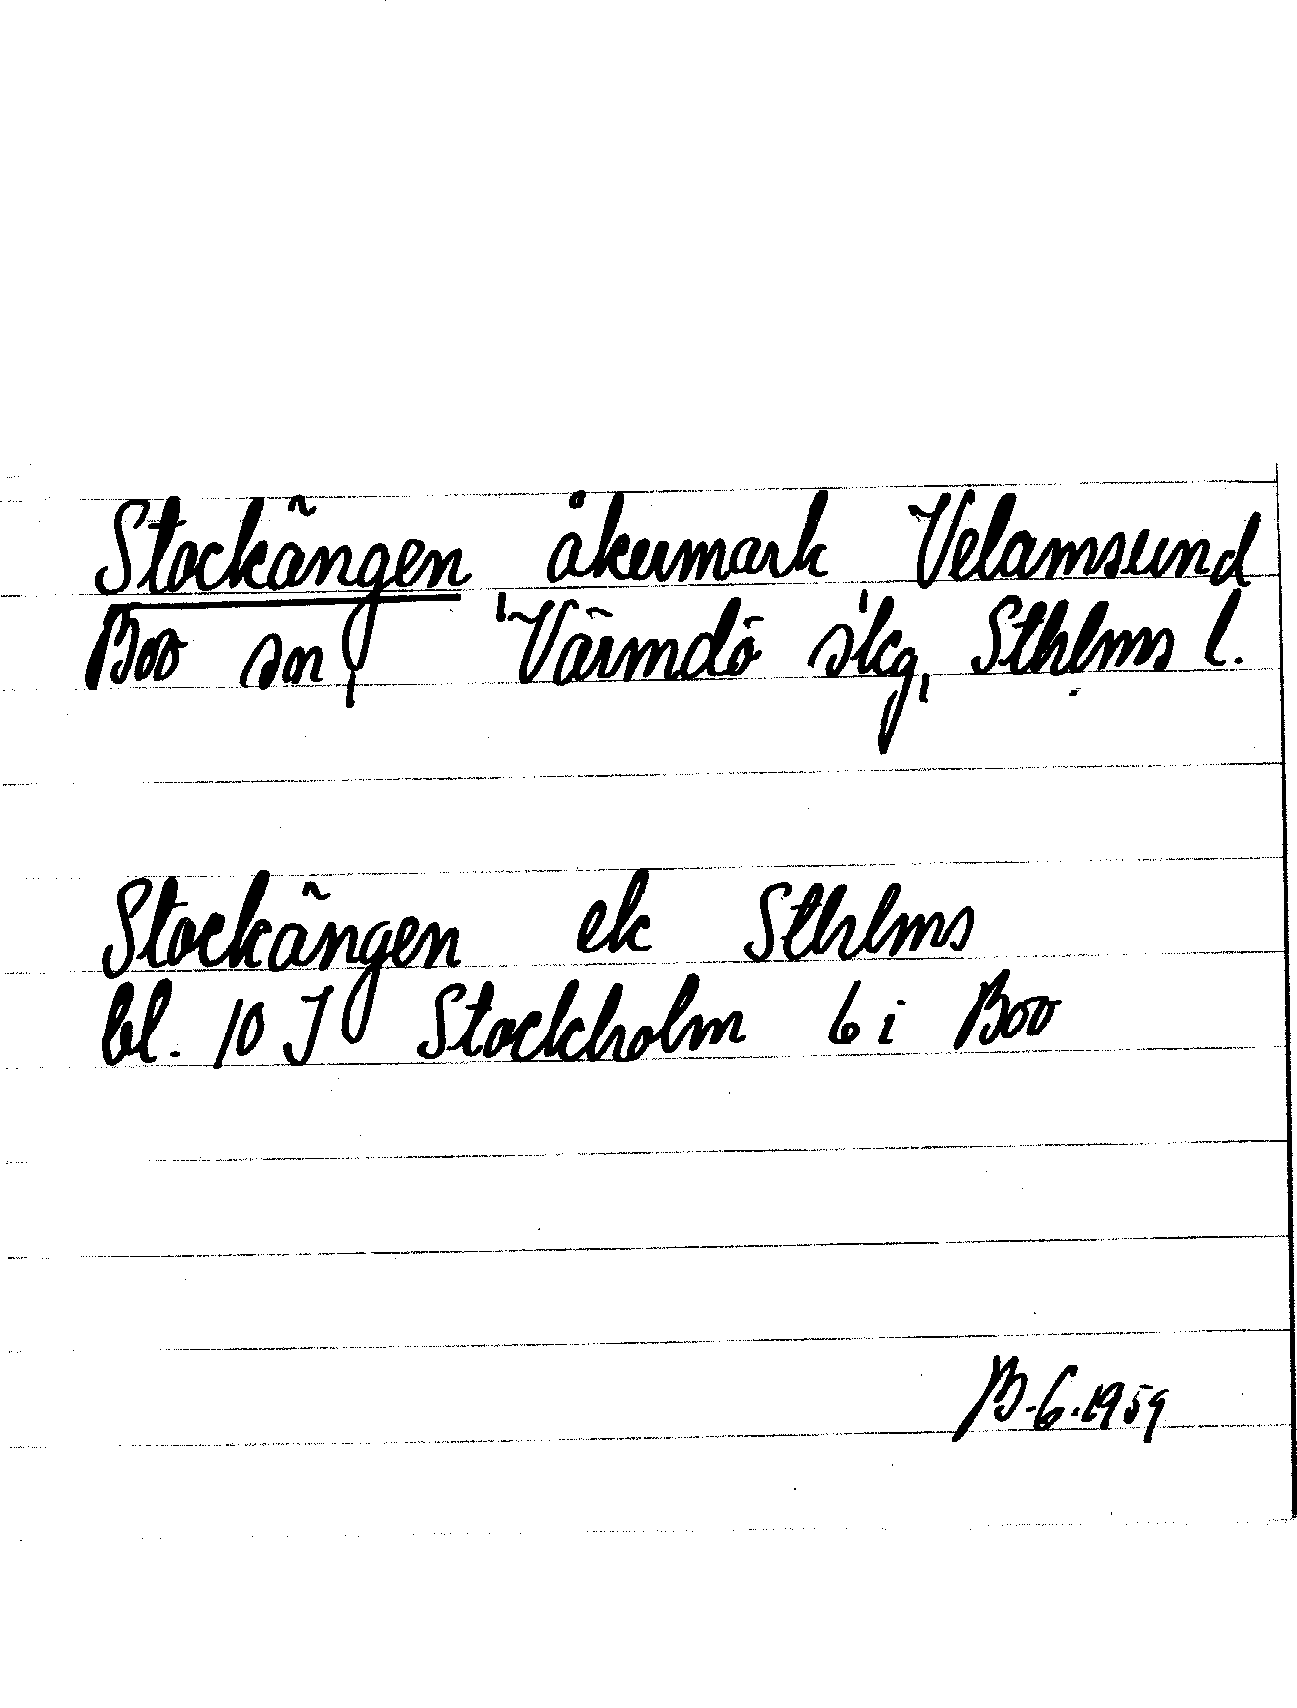 Stockängen åkermark Velamsund
Boo sn, Värmdö skg, Sthlms l.
Stockängen ek Sthlms
bl. 10 J Stockholm 6 i Boo
B.G.1959